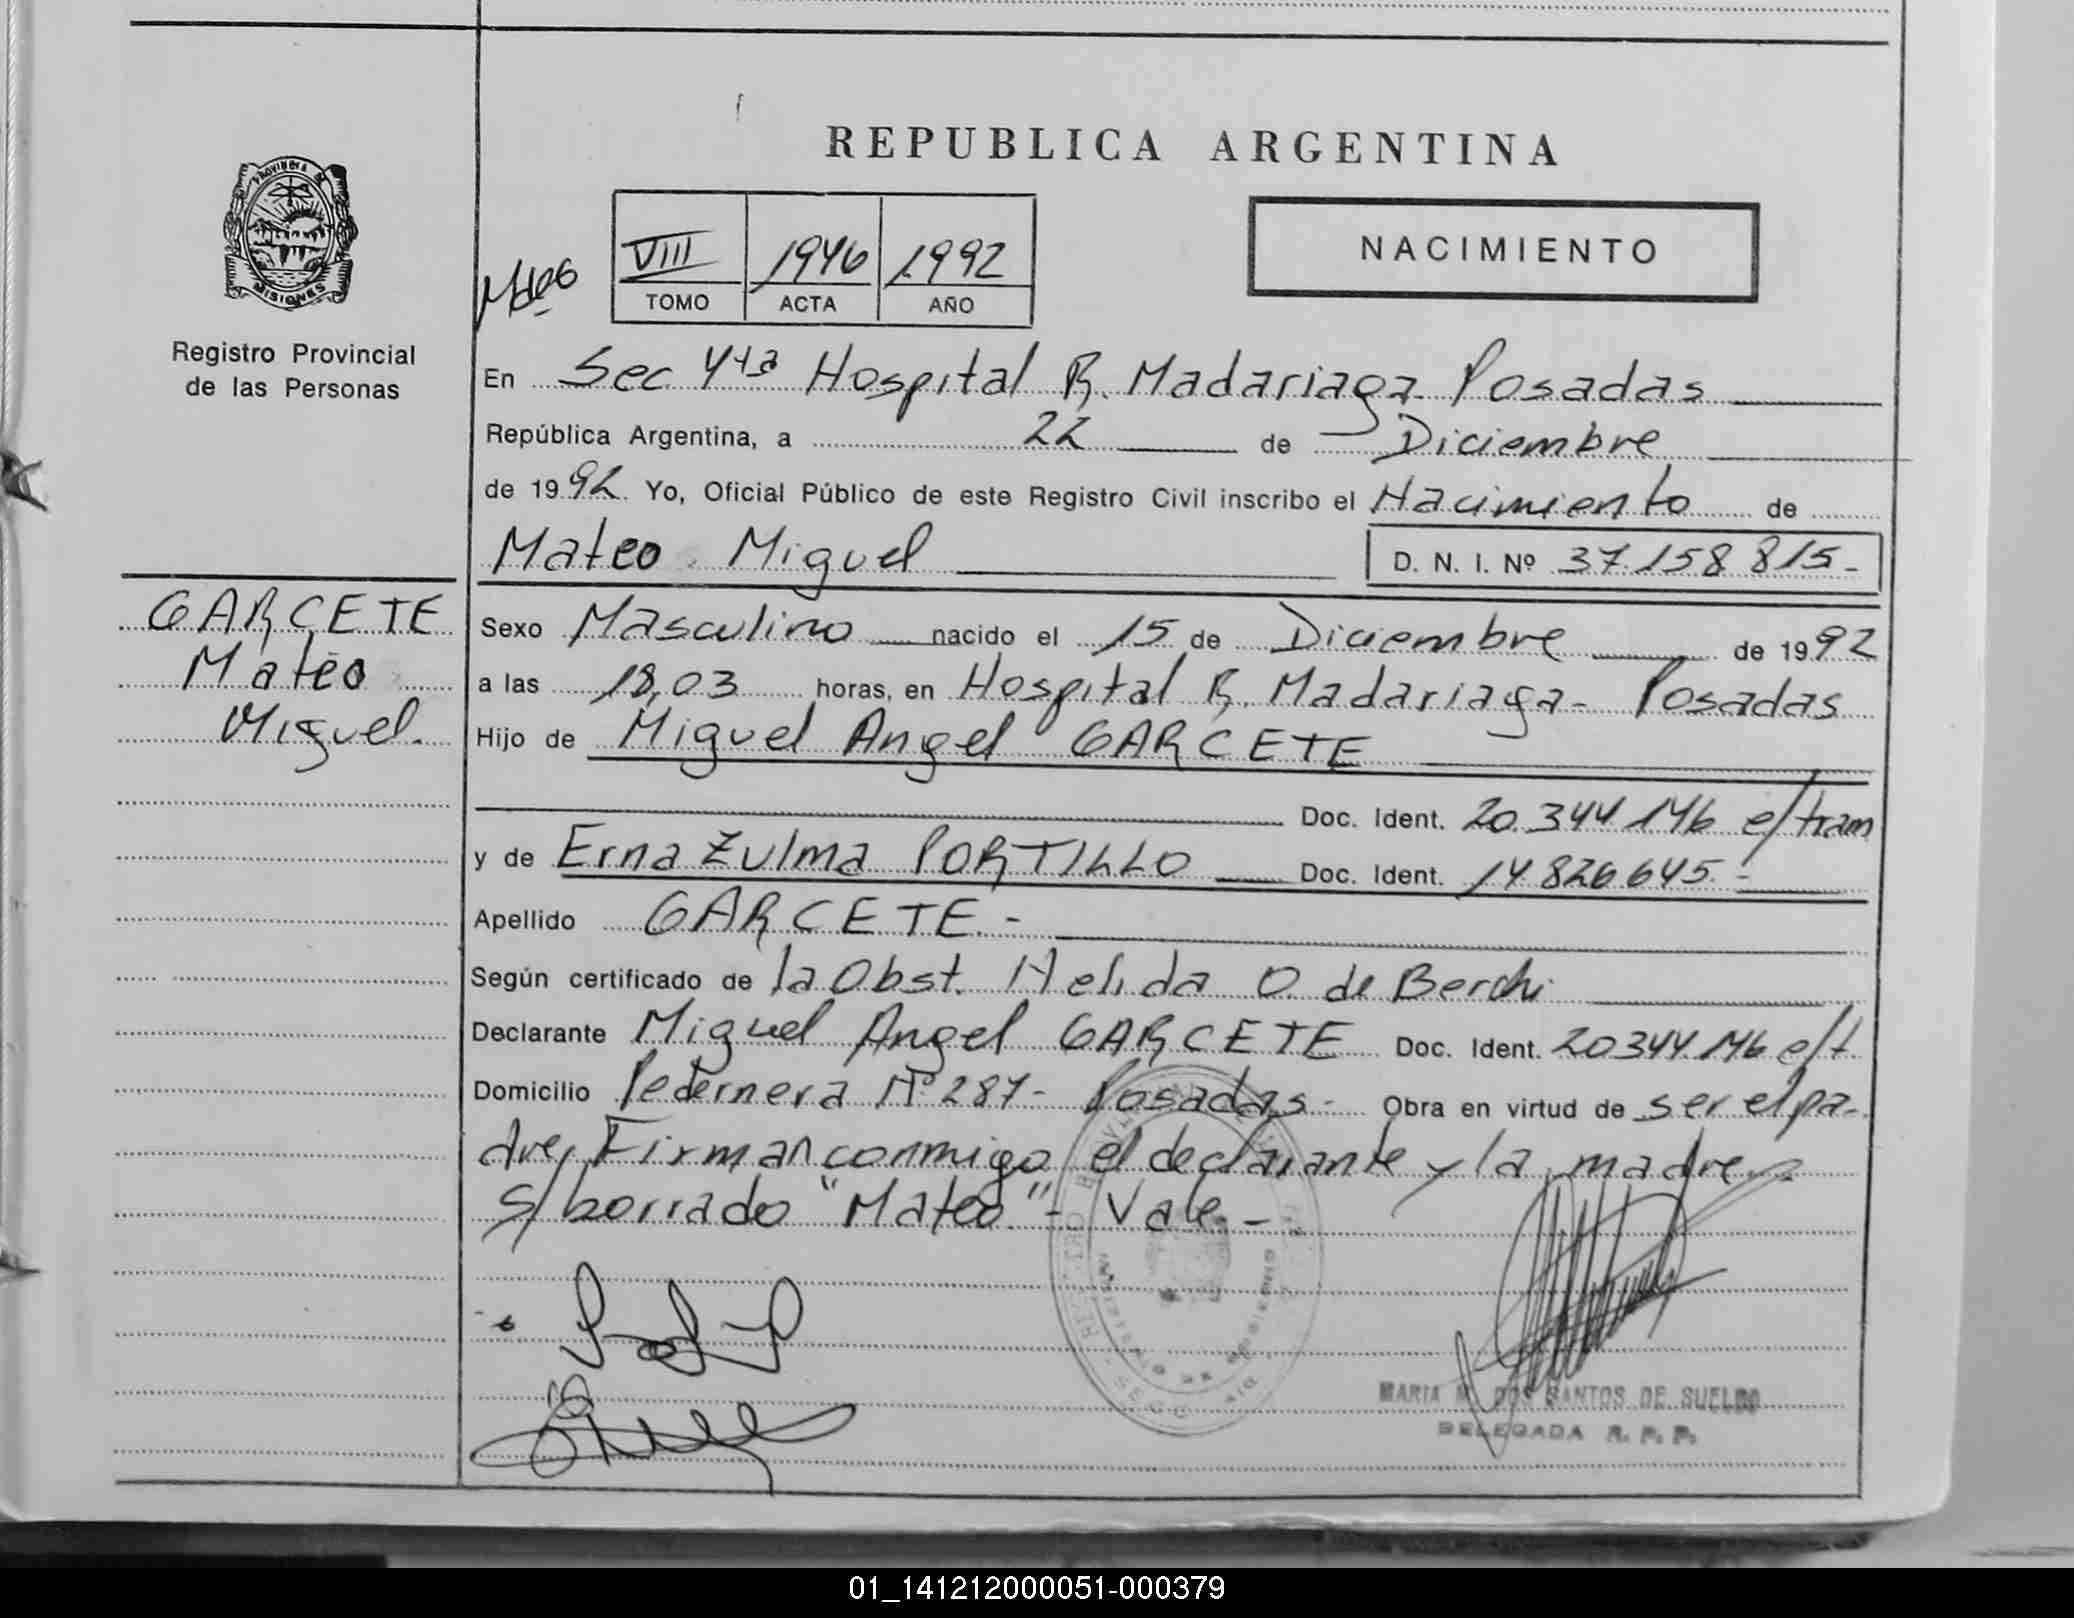 REPUBLICA ARGENTINA
PROVINCIA DE
MISIONES
Registro Provincial
de las Personas
Mateo
VIII 1946 1992
TOMO ACTA AÑO
NACIMIENTO
En Sec 4ta Hospital R. Madariaga - Posadas
República Argentina, a 22 de Diciembre
de 1992. Yo, Oficial Público de este Registro Civil inscribo el Nacimiento de
Mateo Miguel D. N. I. Nº 37.158.815-
GARCETE
Mateo
Miguel.
Sexo Masculino nacido el 15 de Diciembre de 1992
a las 18,03 horas, en Hospital R. Madariaga - Posadas
Hijo de Miguel Angel GARCETE
Doc. Ident. 20.344.146 e/tram
y de Erna Zulma PORTILLO Doc. Ident. 14.826.645.-
Apellido GARCETE.-
Según certificado de la Obst. Nelida O. de Berchi
Declarante Miguel Angel GARCETE Doc. Ident. 20344.146 e/t.
Domicilio Pedernera Nº 287- Posadas- Obra en virtud de ser el pa-
dre, Firman conmigo el declarante y la madre
s/borrado "Mateo"- Vale.-
MARIA M. DOS SANTOS DE SUELDO
DELEGADA R. P. P.
01_141212000051-000379